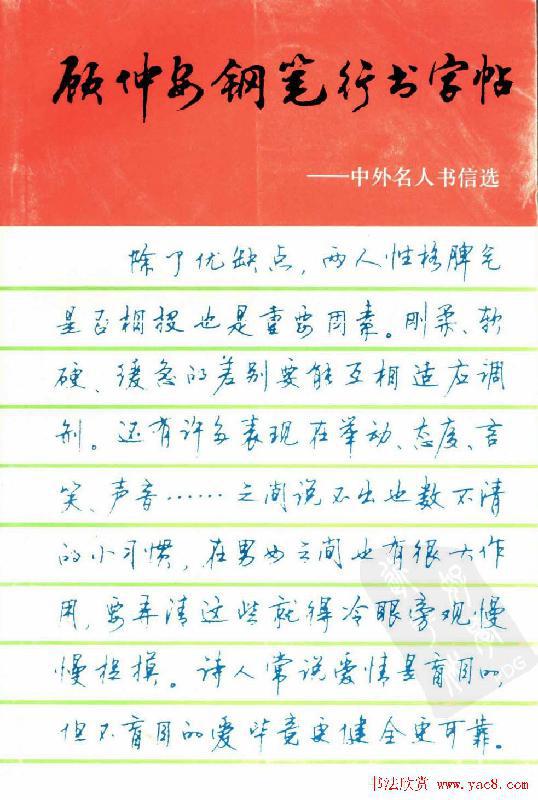 顾仲安钢笔行书字帖
——中外名人书信选
除了优缺点,两人性格脾气
是否相投也是重要因素。刚柔、软
硬、缓急的差别要能互相适应调
剂。还有许多表现在举动、态度、言
笑、声音……之间说不出也数不清
的小习惯,在男女之间也有很大作
用,要弄清这些就得冷眼旁观慢
慢捉摸。诗人常说爱情是盲目的,
但不盲目的爱毕竟更健全更可靠。
书法欣赏 www.yac8.com